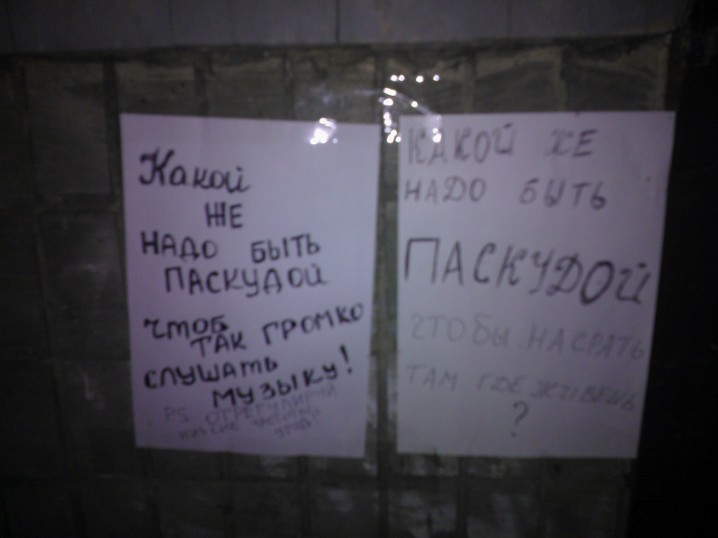 Какой
ЖЕ
НАДО БЫТЬ
ПАСКУДОЙ
чтоб
ТАК ГРОМКО
СЛУШАТЬ
МУЗЫКУ!
P.S ОТРЕГУЛИРУЙ
КАКОЙ ЖЕ
НАДО БЫТЬ
ПАСКУДОЙ
ЧТОБЫ НАСРАТЬ
ТАМ ГДЕ ЖИВЕШЬ
?